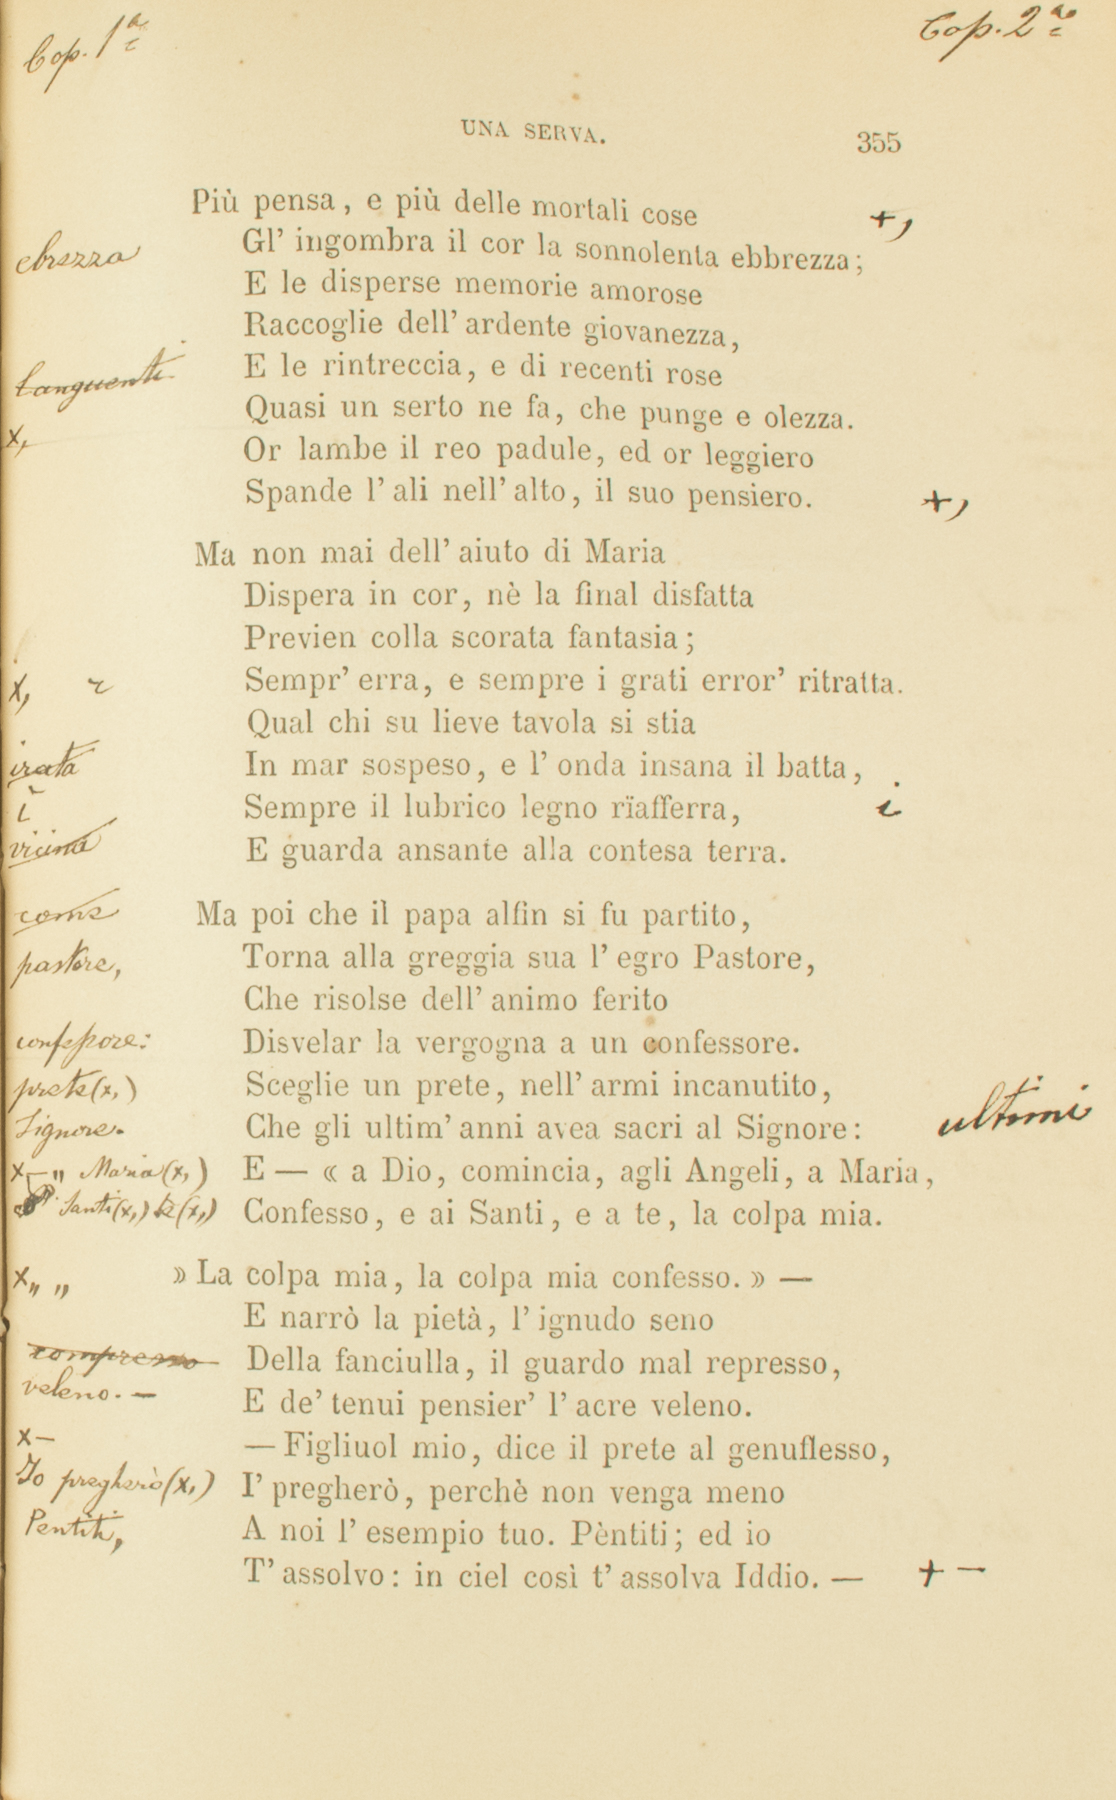 Cop. 1a
Cop. 2a
UNA SERVA.
355
Più pensa, e più delle mortali cose
+,
Gl' ingombra il cor la sonnolenta ebbrezza;
ebrezza
E le disperse memorie amorose
Raccoglie dell' ardente giovanezza,
E le rintreccia, e di recenti rose
languenti
Quasi un serto ne fa, che punge e olezza.
x,
Or lambe il reo padule, ed or leggiero
Spande l' ali nell' alto, il suo pensiero.
+,
Ma non mai dell' aiuto di Maria
Dispera in cor, nè la final disfatta
Previen colla scorata fantasia;
x,
Sempr' erra, e sempre i grati error' ritratta.
Qual chi su lieve tavola si stia
irata
In mar sospeso, e l' onda insana il batta,
i
Sempre il lubrico legno rïafferra,
i
vicina
E guarda ansante alla contesa terra.
come
Ma poi che il papa alfin si fu partito,
pastore,
Torna alla greggia sua l' egro Pastore,
Che risolse dell' animo ferito
confessore:
Disvelar la vergogna a un confessore.
prete(x,)
Sceglie un prete, nell' armi incanutito,
Signore.
Che gli ultim' anni avea sacri al Signore:
ultimi
x—„ Maria(x,)
E — « a Dio, comincia, agli Angeli, a Maria,
Santi(x,) te(x,)
Confesso, e ai Santi, e a te, la colpa mia.
x„ „
» La colpa mia, la colpa mia confesso. » —
E narrò la pietà, l' ignudo seno
compresso
Della fanciulla, il guardo mal represso,
veleno. —
E de' tenui pensier' l' acre veleno.
x—
— Figliuol mio, dice il prete al genuflesso,
Io pregherò(x,)
I' pregherò, perchè non venga meno
Pentiti,
A noi l' esempio tuo. Pèntiti; ed io
T' assolvo: in ciel così t' assolva Iddio. —
+ —